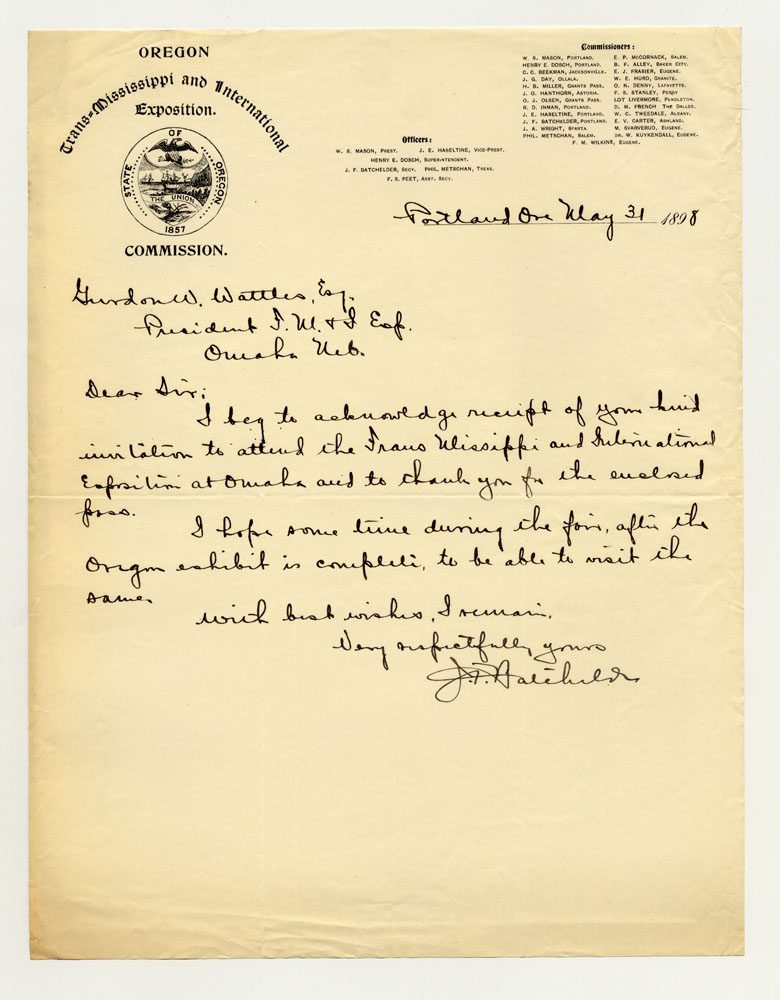 OREGON
Trans-Mississippi and International
Exposition.
STATE OF OREGON
THE UNION
1857
COMMISSION.
Officers:
W. S. MASON, PREST. J. E. HASELTINE, VICE-PREST.
HENRY E. DOSCH, SUPERINTENDENT.
J. F. BATCHELDER, SECY. PHIL. METSCHAN, TREAS.
F. S. PEET, ASST. SECY.
Commissioners:
W. S. MASON, PORTLAND.
HENRY E. DOSCH, PORTLAND.
C. C. BEEKMAN, JACKSONVILLE.
J. G. DAY, OLLALA.
H. B. MILLER, GRANTS PASS.
J. O. HANTHORN, ASTORIA.
O. J. OLSEN, GRANTS PASS.
R. D. INMAN, PORTLAND.
J. E. HASELTINE, PORTLAND.
J. F. BATCHELDER, PORTLAND.
J. A. WRIGHT, SPARTA.
PHIL. METSCHAN, SALEM.
E. P. McCORNACK, SALEM.
B. F. ALLEY, BAKER CITY.
E. J. FRASIER, EUGENE.
W. E. HURD, GRANITE.
O. N. DENNY, LAFAYETTE.
F. S. STANLEY, PERRY
LOT LIVERMORE, PENDLETON.
D. M. FRENCH THE DALLES.
W. C. TWEEDALE, ALBANY.
E. V. CARTER, ASHLAND.
M. SVARVERUD, EUGENE.
DR. W. KUYKENDALL, EUGENE.
F. M. WILKINS, EUGENE.
Portland Ore May 31 1898
Gurdon W. Wattles, Esq.
President T. M. & I Exp.
Omaha Neb.
Dear Sir:
I beg to acknowledge receipt of your kind
invitation to attend the Trans Missippi and International
Exposition at Omaha and to thank you for the enclosed
pass.
I hope some time during the fair, after the
Oregon exhibit is complete, to be able to visit the
same.
With best wishes, I remain,
Very respectfully yours
J. F. Batchelder